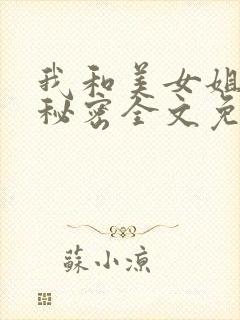 我和美女姐
秘密全文免
蘇小涼